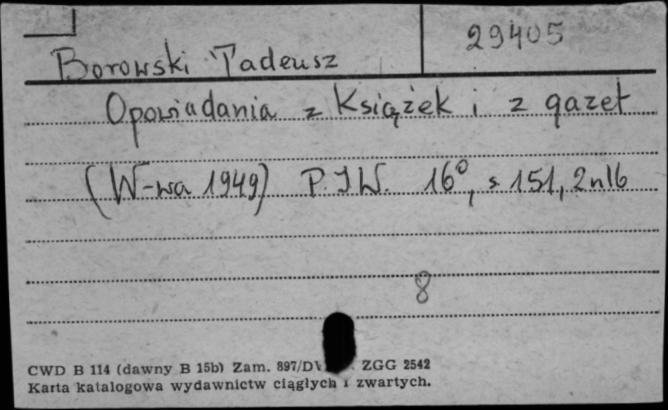 29405
Borowski Tadeusz
Opowiadania z książek i z gazet
(W-wa 1949) P.I.W. 16°, s. 151, 2 nlb
8
CWD B 114 (dawny B 15b) Zam. 897/D ZGG 2542
Karta katalogowa wydawnictw ciągłych i zwartych.